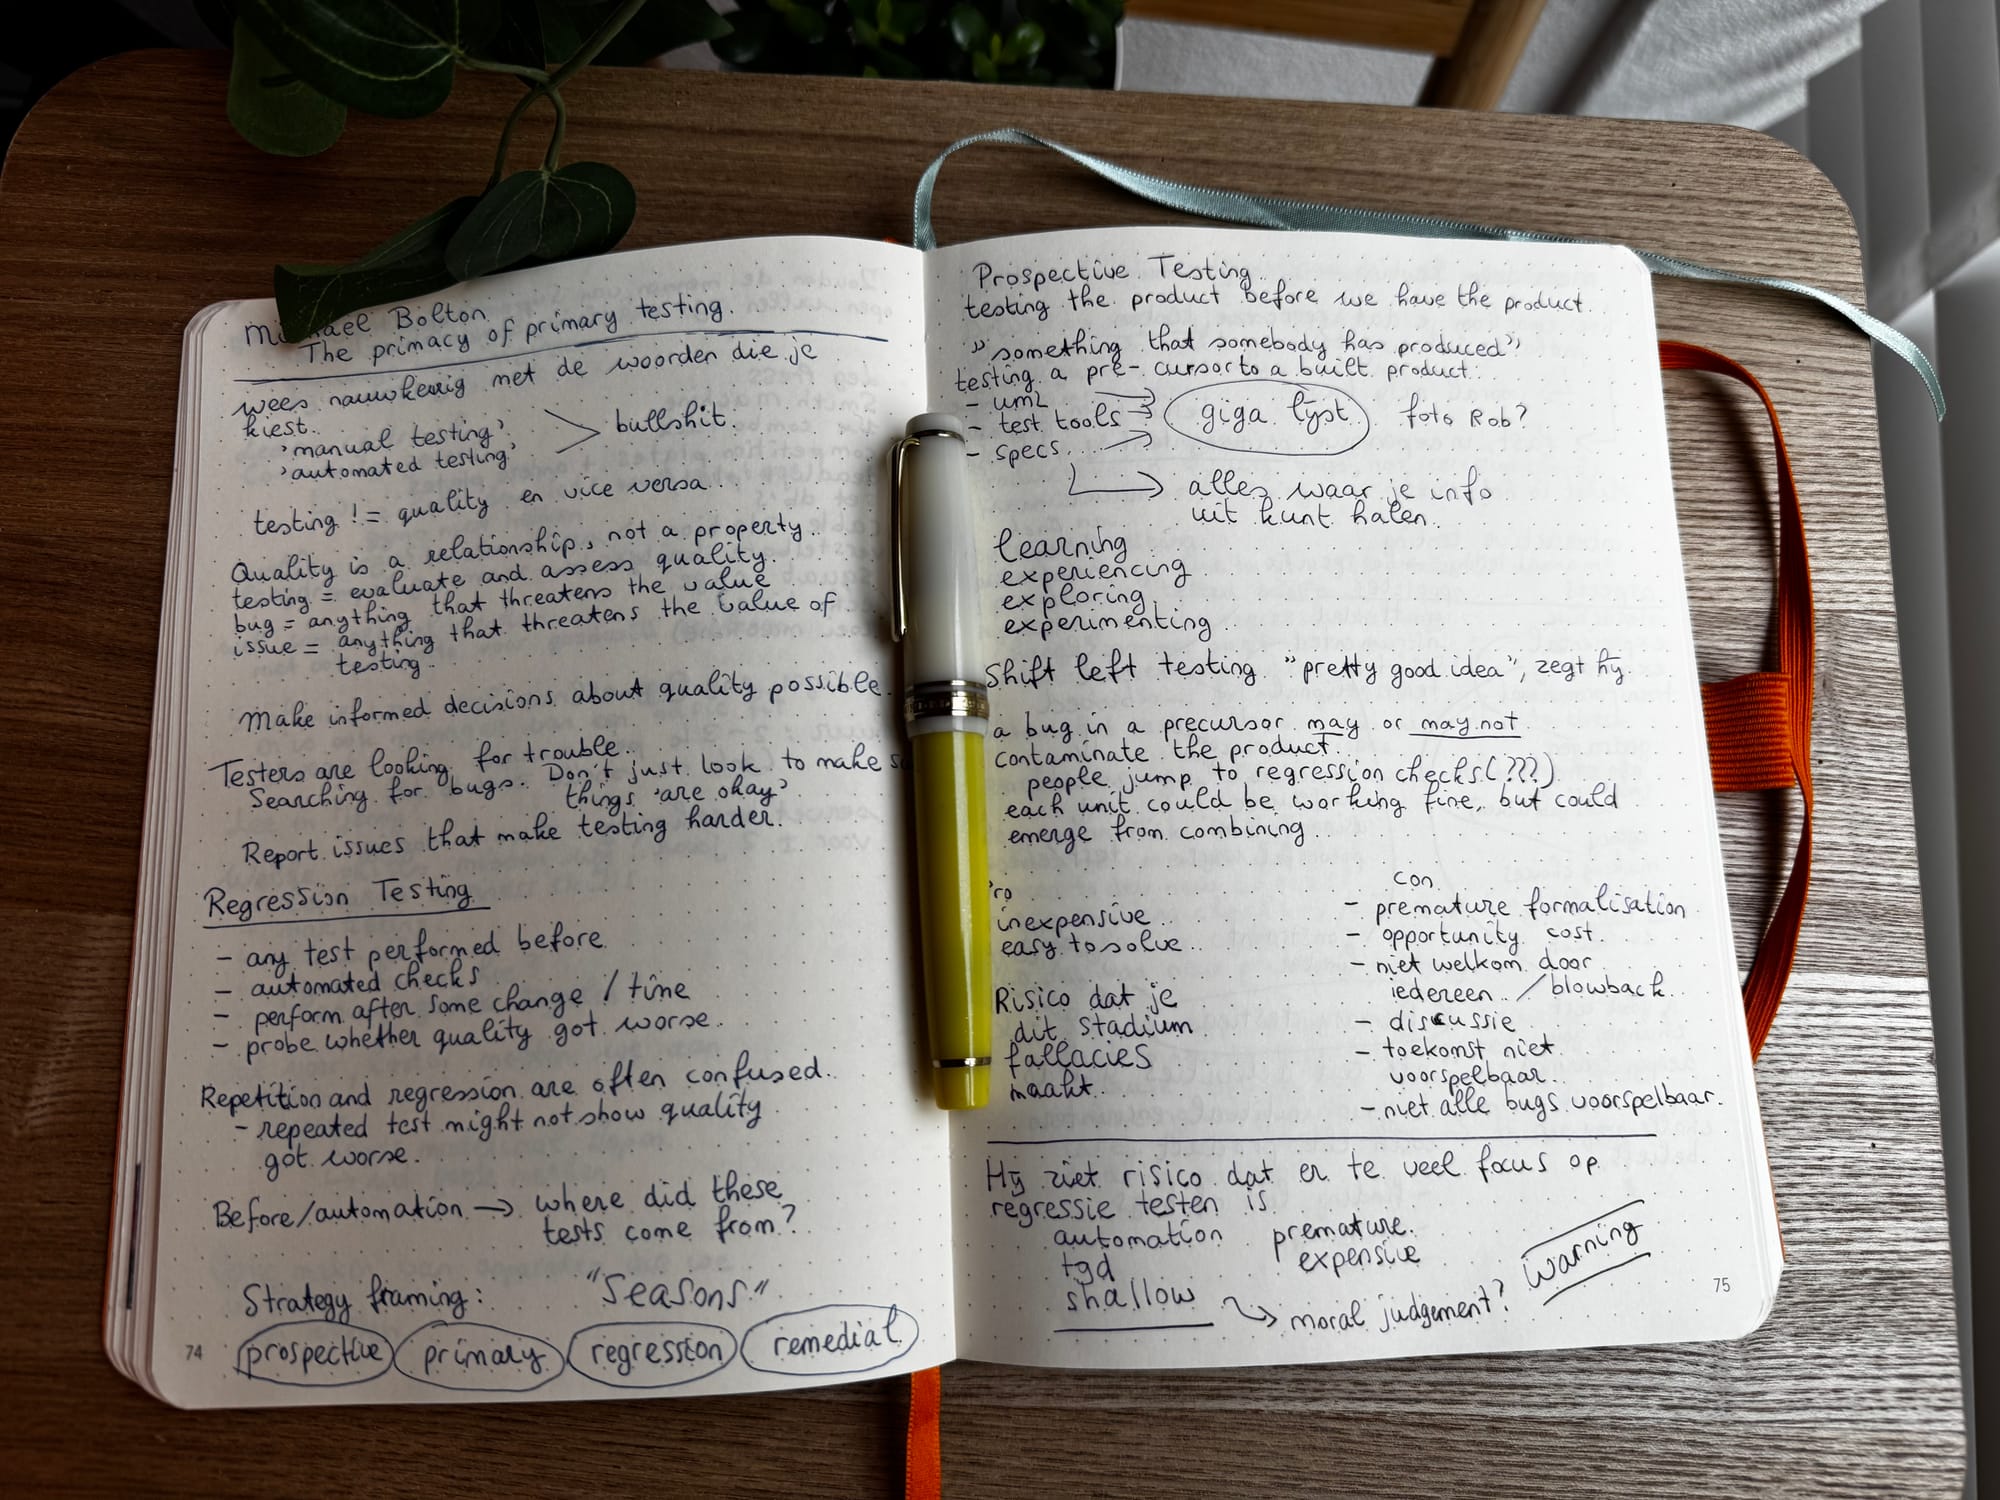 Michael Bolton
The primacy of primary testing.
wees nauwkeurig met de woorden die je
kiest.
'manual testing'
'automated testing'
bullshit.
testing != quality en vice versa.
Quality is a relationship, not a property.
testing = evaluate and assess quality.
bug = anything that threatens the value
issue = anything that threatens the value of
testing.
Make informed decisions about quality possible.
Testers are looking for trouble.
Searching for bugs. Don't just look to make
things 'are okay'
Report issues that make testing harder.
Regression Testing
- any test performed before
- automated checks
- perform after some change / time
- probe whether quality got worse.
Repetition and regression are often confused.
- repeated test might not show quality
got worse.
Before/automation → where did these
tests come from?
Strategy framing: "Seasons"
prospective primary regression remedial
74
Prospective Testing
testing the product before we have the product.
"something that somebody has produced"
testing a pre-cursor to a built product:
- UML
- test tools
- specs
giga lijst
foto Rob?
alles waar je info
uit kunt halen.
learning
experiencing
exploring
experimenting
Shift left testing "pretty good idea", zegt hij.
a bug in a precursor may or may not
contaminate the product.
people jump to regression checks (???)
each unit could be working fine, but could
emerge from combining
ro
inexpensive
easy to solve
Risico dat je
dit stadium
fallacies
maakt.
con
- premature formalisation
- opportunity cost
- niet welkom door
iedereen / blowback
- discussie
- toekomst niet
voorspelbaar
- niet alle bugs voorspelbaar.
Hij ziet risico dat er te veel focus op
regressie testen is
automation premature
tgd expensive
shallow
moral judgement?
Warning
75